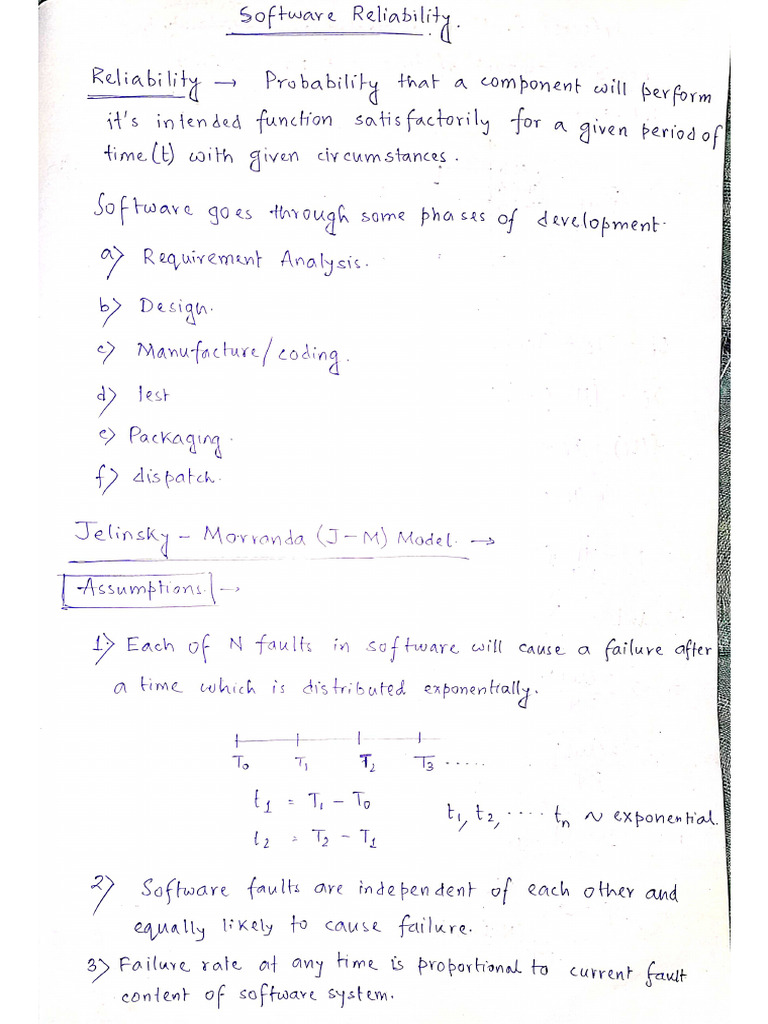 Software Reliability.
Reliability → Probability that a component will perform
it's intended function satisfactorily for a given period of
time(t) with given circumstances.
Software goes through some phases of development.
a) Requirement Analysis.
b) Design.
c) Manufacture/coding.
d) Test
e) Packaging.
f) dispatch.
Jelinsky – Morranda (J–M) Model. →
Assumptions. →
1) Each of N faults in software will cause a failure after
a time which is distributed exponentially.
T0 T1 T2 T3 .....
t1 = T1 – T0
t1, t2, .... tn ~ exponential.
t2 = T2 – T1
2) Software faults are independent of each other and
equally likely to cause failure.
3) Failure rate at any time is proportional to current fault
content of software system.